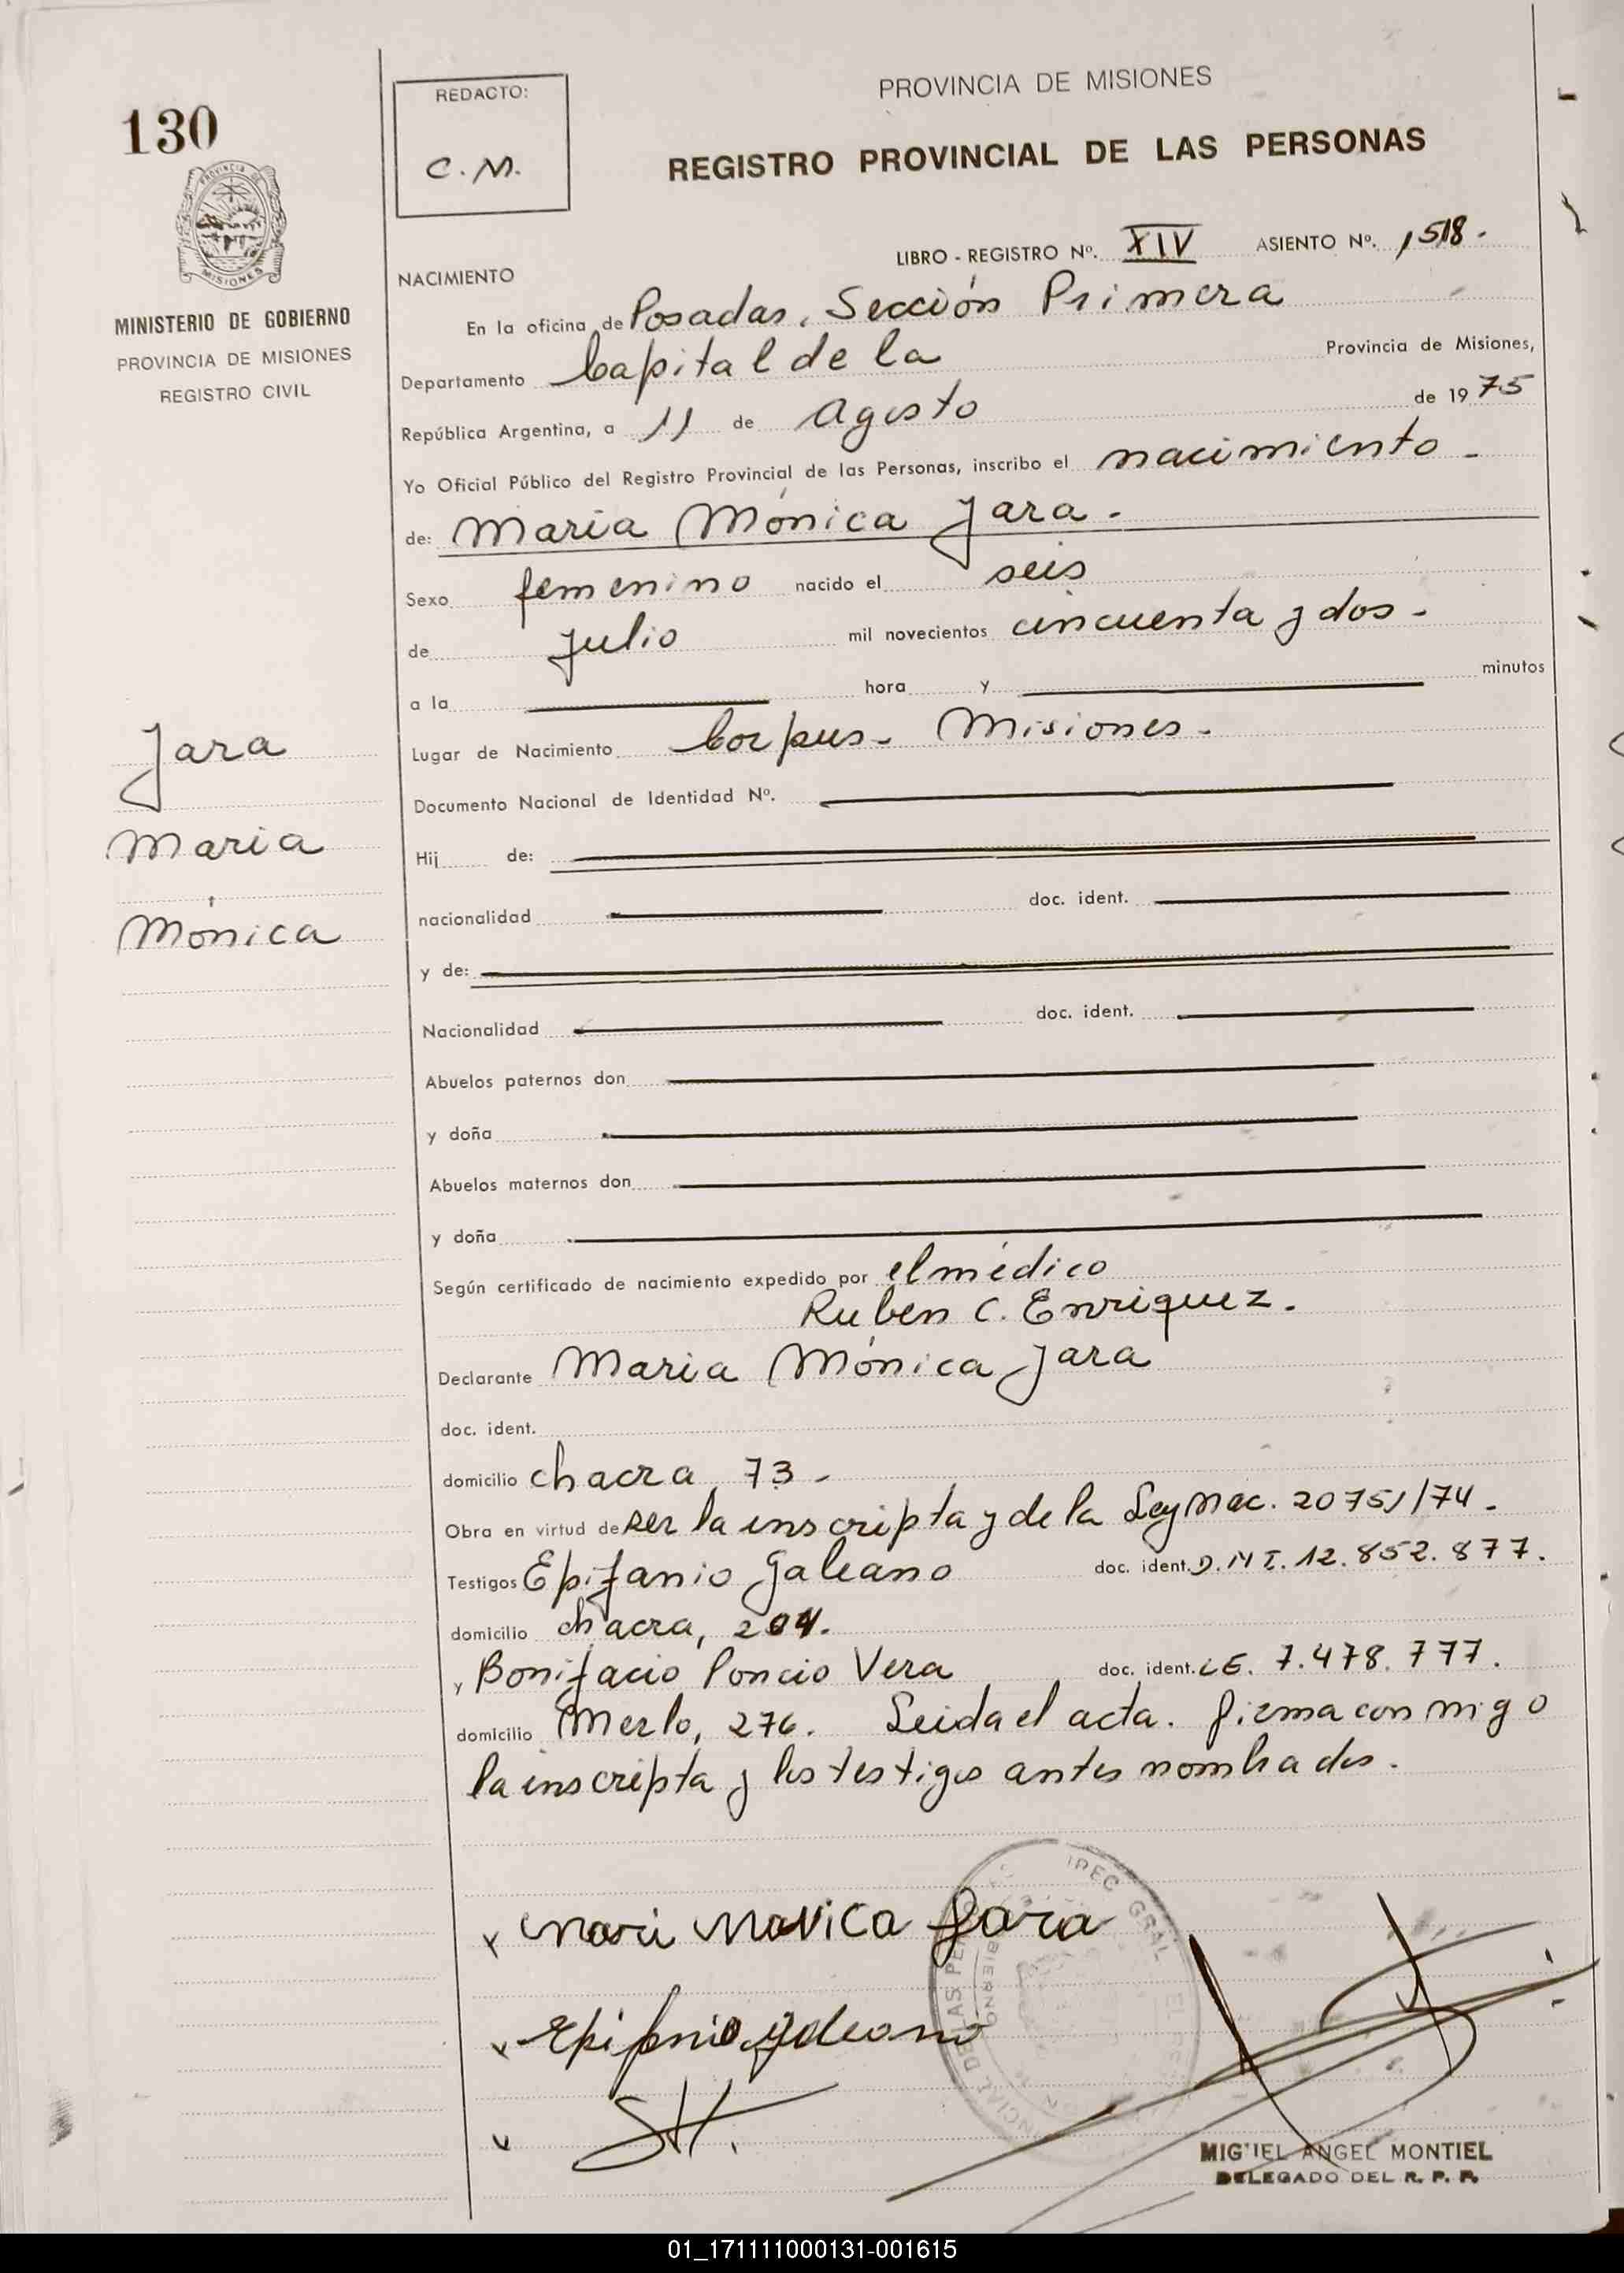 130
REDACTO:
C. M.
PROVINCIA DE MISIONES
REGISTRO PROVINCIAL DE LAS PERSONAS
PROVINCIA DE
MISIONES
MINISTERIO DE GOBIERNO
PROVINCIA DE MISIONES
REGISTRO CIVIL
LIBRO - REGISTRO Nº. XIV ASIENTO Nº. 1518.-
NACIMIENTO
En la oficina de Posadas, Sección Primera
Departamento Capital de la Provincia de Misiones,
República Argentina, a 11 de Agosto de 1975
Yo Oficial Público del Registro Provincial de las Personas, inscribo el nacimiento -
de: Maria Mónica Jara.-
Sexo femenino nacido el seis
de julio mil novecientos cincuenta y dos -
a la hora y minutos
Lugar de Nacimiento Corpus - Misiones -
Documento Nacional de Identidad Nº.
Hij de:
nacionalidad doc. ident.
y de:
Nacionalidad doc. ident.
Abuelos paternos don
y doña
Abuelos maternos don
y doña
Según certificado de nacimiento expedido por el médico
Ruben C. Enriquez.
Declarante Maria Mónica Jara
doc. ident.
domicilio chacra 73 -
Obra en virtud de ser la inscripta y de la Ley Nac. 20751/74 -
Testigos Epifanio Galeano doc. ident. D.N.I. 12.852.877.
domicilio chacra, 204.
y Bonifacio Poncio Vera doc. ident. LE. 7.478.777.
domicilio Merlo, 276. Leida el acta. firma conmigo
la inscripta y los testigos antes nombrados.
Jara
Maria
Mónica
x Mari Monica Jara
Epifanio Galeano
MIGUEL ANGEL MONTIEL
DELEGADO DEL R. P. P.
01_171111000131-001615